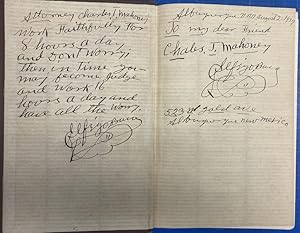 Attorney Charles T. Mahoney
Work Faithfully for
8 hours a day
and Don't Worry;
Then in Time you
may become Judge
and Work 16
hours a day and
have all the Worry.
Elfego Baca
Albuquerque N.M. August
To my dear friend
Charles, T, Mahoney
Elfego Baca
523 Gold ave
Albuquerque new mexico